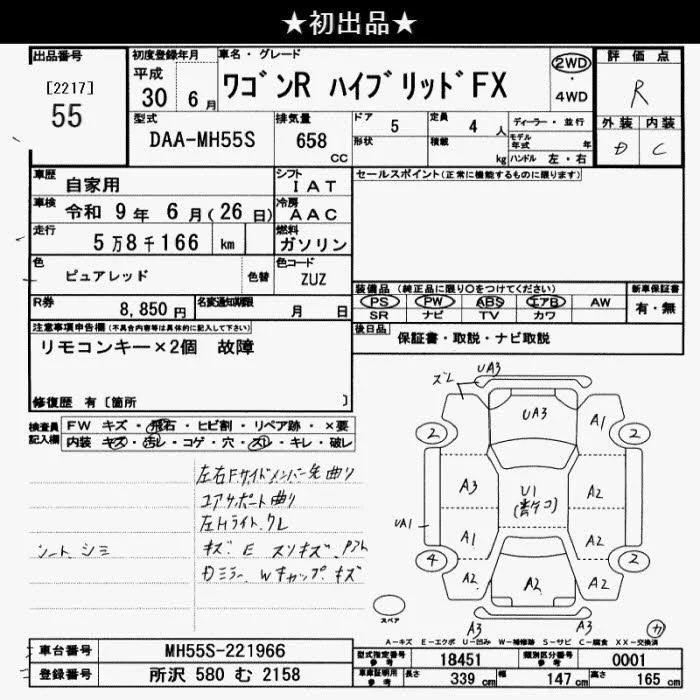 ★初出品★
出品番号
[2217]
55
初度登録年月
平成
30年 6月
車名・グレード
ワゴンR ハイブリッドFX
2WD
・
4WD
評価点
R
外装 内装
D C
型式
DAA-MH55S
排気量
658
CC
ドア
5
定員
4人
形状
積載
kg
ディーラー・並行
モデル年式 年
ハンドル 左・右
車歴
自家用
シフト
IAT
セールスポイント(正常に機能するものに限ります)
車検
令和 9年 6月(26日)
冷房
AAC
走行
5万8千166 km
燃料
ガソリン
色
ピュアレッド
色替
色コード
ZUZ
装備品 (純正品に限り○をつけてください)
PS PW ABS エアB AW
SR ナビ TV カワ
新車保証書
有・無
R券
8,850円
名変通知期限
月 日
後日品
保証書・取説・ナビ取説
注意事項申告欄(不具合内容等は具体的に記入して下さい)
リモコンキー×2個 故障
修復歴 有[箇所 ]
検査員記入欄
FW キズ・飛石・ヒビ割・リペア跡・×要
内装 キズ・汚レ・コゲ・穴・スレ・キレ・破レ
左右Fサイドメンバー先曲り
コアサポート曲り
左Hライト、クレ
シート シミ
キズ E スリキズ
Wキャップ キズ
ズレ
UA3
UA3
A1
2
2
A3
U1
A2
UA1
A1
A2
4
2
A2
A2
A2
A3
A3
カ
スペア
A-キズ E-エクボ U-凹み W-補修跡 S-サビ C-腐食 XX-交換済
車台番号
MH55S-221966
型式指定番号
参考
18451
類別区分番号
参考
0001
登録番号
所沢 580 む 2158
車庫証明用
参考
長さ 339 cm
幅 147 cm
高さ 165 cm